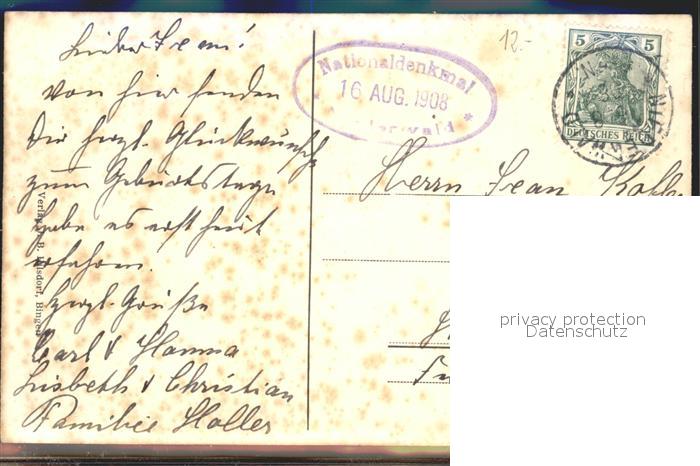 Lieber Jean!
Von hier senden
Dir herzl. Glückwunsch
zum Geburtstage
habe es erst heut
erfahren.
Herzl. Grüße
Carl & Hanna
Lisbeth & Christian
Familie Holler
Nationaldenkmal
16 AUG. 1908
12.-
5 5
DEUTSCHES REICH
Herrn Jean
Bingen
privacy protection
Datenschutz